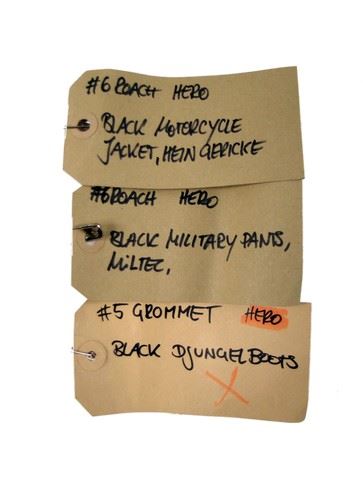 #6 ROACH HERO
BLACK MOTORCYCLE
JACKET, HEIN GERICKE
#6 ROACH HERO
BLACK MILITARY PANTS,
MILTEC,
#5 GROMMET HERO
BLACK DJUNGELBOOTS
X